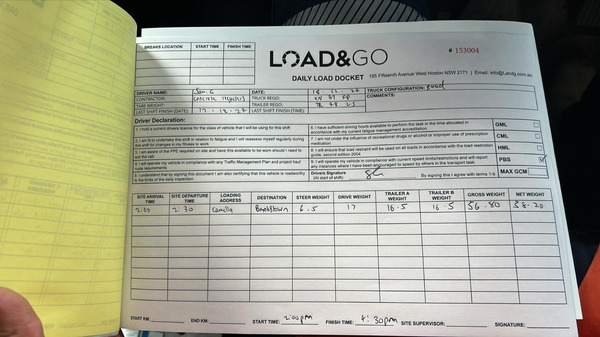 BREAKS LOCATION START TIME FINISH TIME
LOAD&GO
# 153004
DAILY LOAD DOCKET
195 Fifteenth Avenue West Hoxton NSW 2171 | Email: info@Landg.com.au
DRIVER NAME: Jon. G DATE: TRUCK CONFIGURATION: Quad
CONTRACTOR: TRUCK REGO: COMMENTS:
TIME WEIGHT: TRAILER REGO:
LAST SHIFT FINISH (DATE): LAST SHIFT FINISH (TIME):
Driver Declaration:
1. I hold a current drivers licence for the class of vehicle that I will be using for this shift
2. I am fit to undertake this shift in relation to fatigue and I will reassess myself regularly during this shift for changes in my fitness to work
3. I am aware of the PPE required on site and have this available to be worn should I need to exit the cab
4. I will operate my vehicle in compliance with any Traffic Management Plan and project haul route requirements
5. I understand that by signing this document I am also certifying that this vehicle is roadworthy to the limits of the daily inspection
6. I have sufficient driving hours available to perform the task in the time allocated in accordance with my current fatigue management accreditation
7. I am not under the influence of recreational drugs or alcohol or improper use of prescription medication
8. I will ensure that load restraint will be used on all loads in accordance with the load restraint guide, second edition 2004
9. I will operate my vehicle in compliance with current speed limits/restrictions and will report any instances where I have been encouraged to speed by others in the transport task
Drivers Signature
(At start of shift)
By signing this I agree with terms 1-9
GML
CML
HML
PBS
MAX GCM
SITE ARRIVAL TIME SITE DEPARTURE TIME LOADING ADDRESS DESTINATION STEER WEIGHT DRIVE WEIGHT TRAILER A WEIGHT TRAILER B WEIGHT GROSS WEIGHT NET WEIGHT
2:30 Camellia Bankstown 6.5 17 16.5 16.5 56.80 38.20
START KM: END KM: START TIME: 2:00pm FINISH TIME: 4:30pm SITE SUPERVISOR: SIGNATURE: